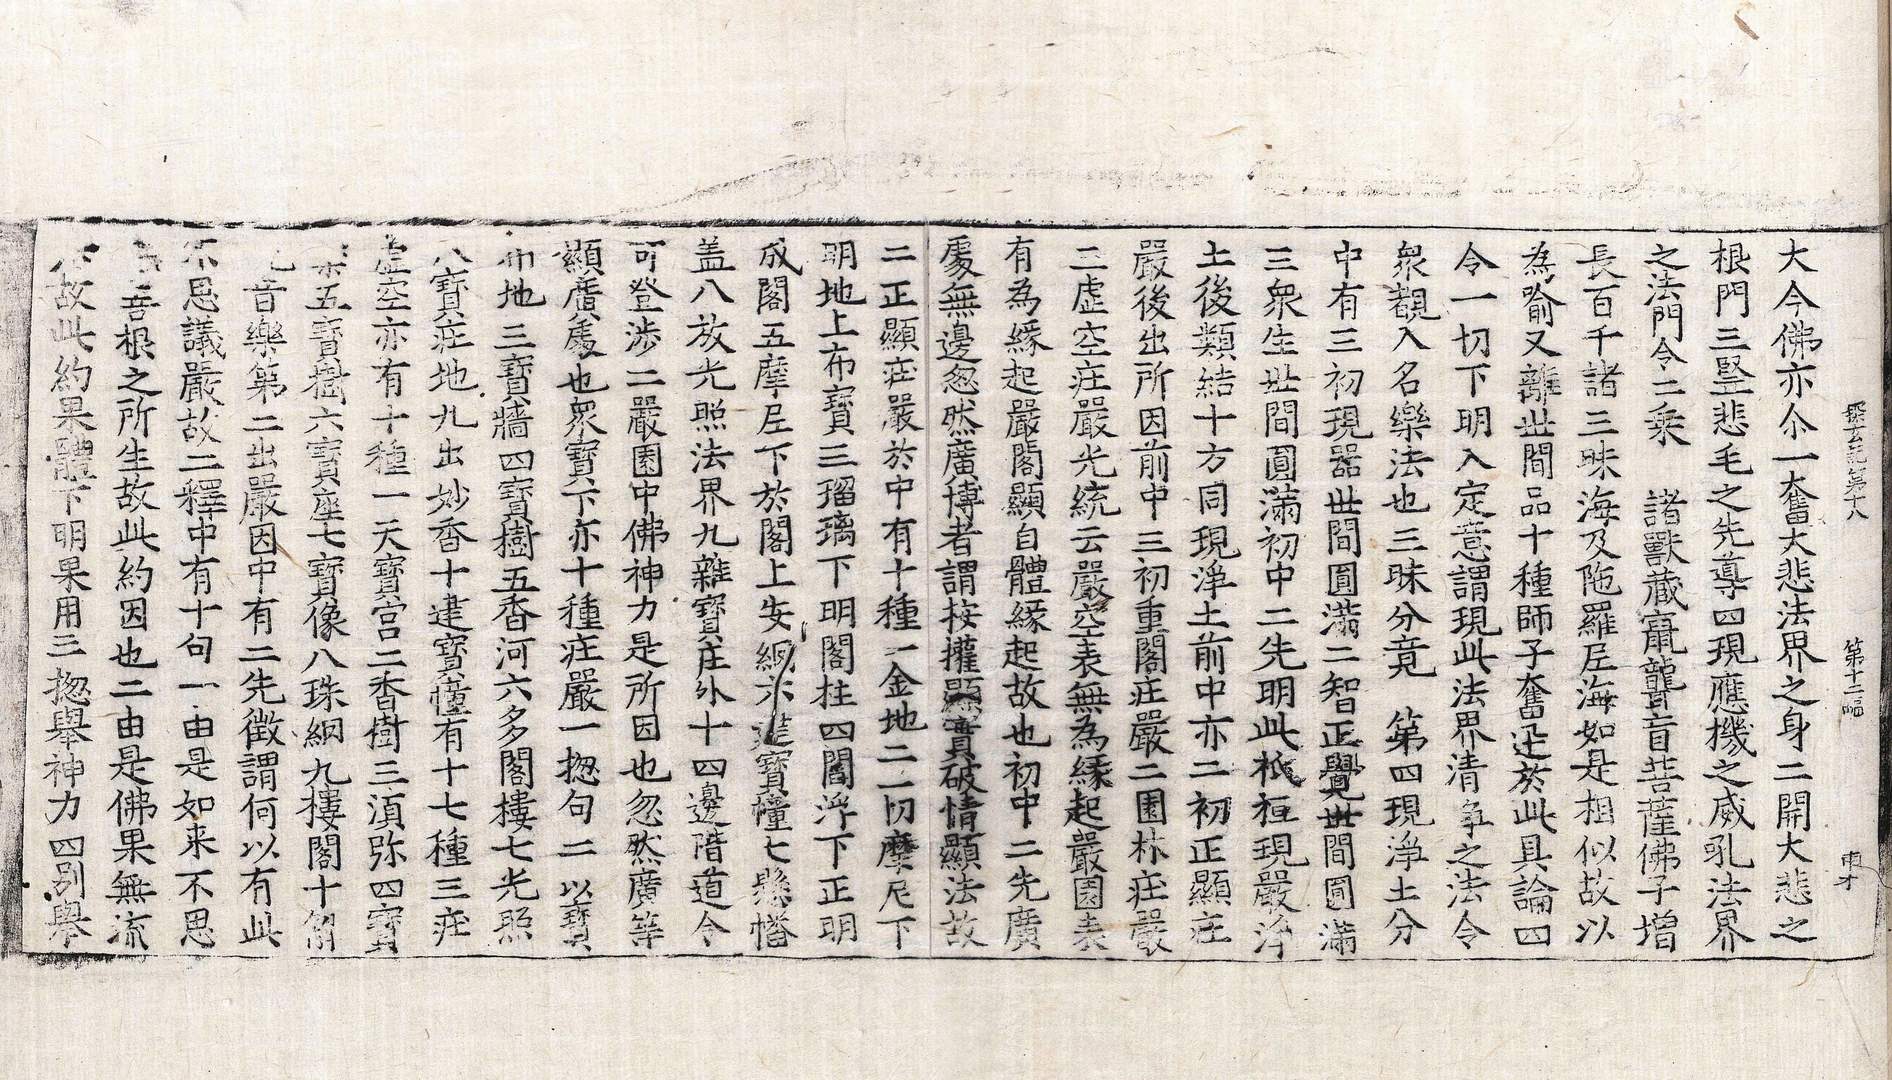 探玄記第十八　第十二幅　東才
大今佛亦尒一奮大悲法界之身二開大悲之
根門三竪悲毛之先導四現應機之威吼法界
之法門令二乘　諸獸藏竄聾盲菩薩佛子增
長百千諸三昧海及陁羅尼海如是相似故以
為喻又離世間品十種師子奮迅於此具論四
令一切下明入定意謂現此法界清淨之法令
衆覩入名樂法也三昧分竟　第四現淨土分
中有三初現器世間圓滿二智正覺世間圓滿
三衆生世間圓滿初中二先明此祇桓現嚴淨
土後類結十方同現淨土前中亦二初正顯庄
嚴後出所因前中三初重閣庄嚴二園林庄嚴
三虛空庄嚴光統云嚴空表無為緣起嚴園表
有為緣起嚴閣顯自體緣起故也初中二先廣
處無邊忽然廣博者謂按權顯實破情顯法故
二正顯庄嚴於中有十種一金地二一切摩尼下
明地上布寶三瑠璃下明閣柱四閻浮下正明
成閣五摩尼下於閣上安網六建寶幢七懸幡
盖八放光照法界九雜寶庄外十四邊階道令
可登涉二嚴園中佛神力是所因也忽然廣等
顯廣處也衆寶下亦十種庄嚴一揔句二以寶
布地三寶牆四寶樹五香河六多閣樓七光照
八寶庄地九出妙香十建寶幢有十七種三庄
虛空亦有十種一天寶宮二香樹三湏弥四寶
樂五寶樹六寶座七寶像八珠網九樓閣十劒
音樂第二出嚴因中有二先徵謂何以有此
不思議嚴故二釋中有十句一由是如来不思
善根之所生故此約因也二由是佛果無流
故此約果體下明果用三揔舉神力四別舉